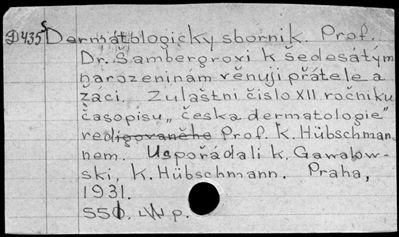 D435 Dermatologický sborník. Prof.
Dr. Šambergrovi k šedesátým
narozeninám věnují přátelé a
žáci. Zvláštní číslo XII ročníku
časopisu „česka dermatologie"
redigovaného Prof. K. Hübschman
nem. Uspořádali K. Gawalow-
ski, K. Hübschmann. Praha,
1931.
550. p.